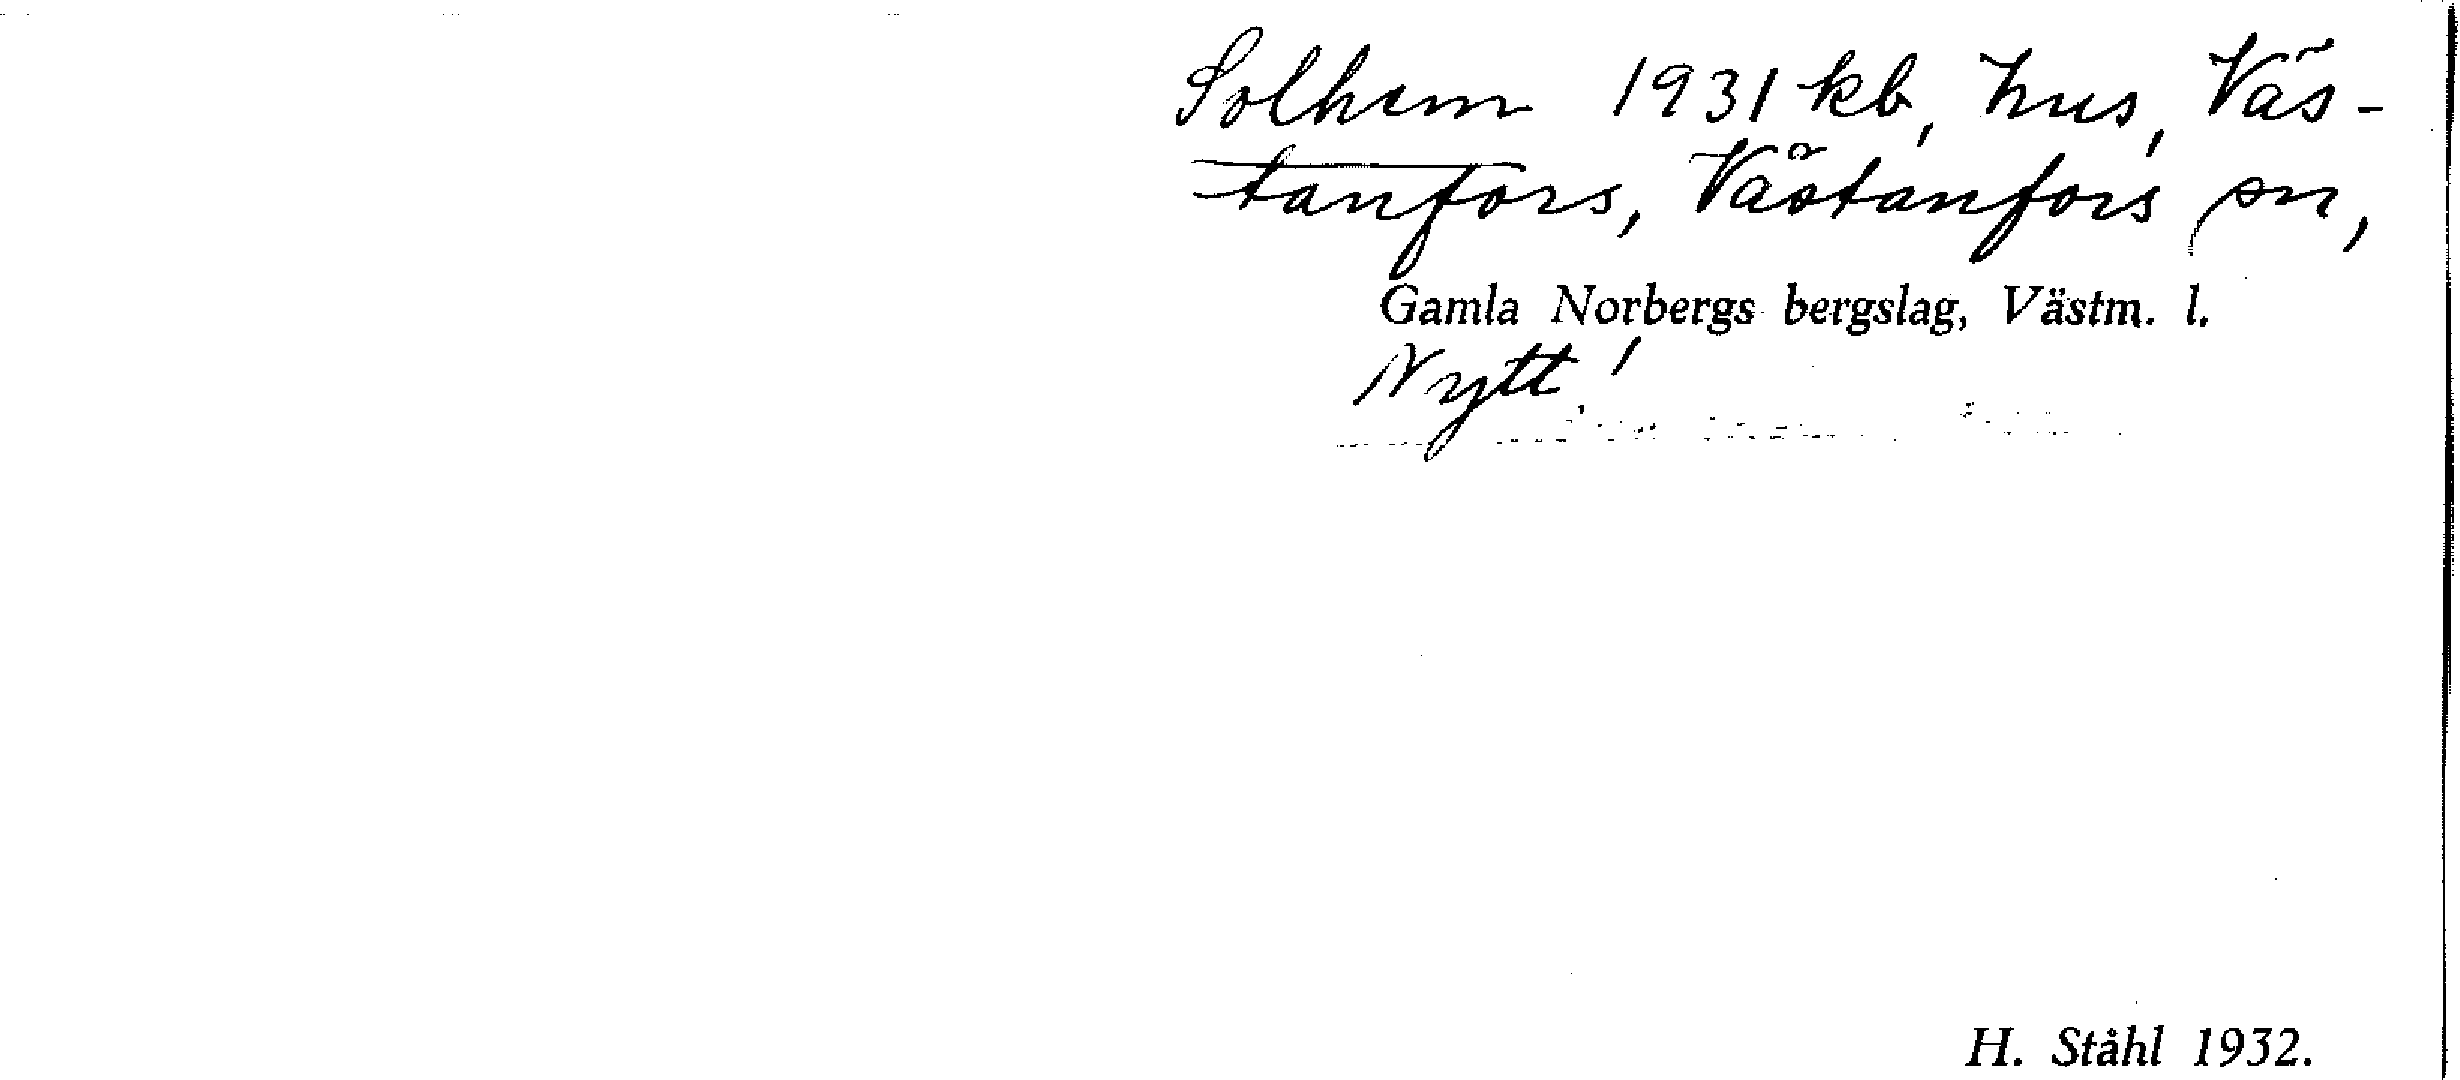 Solhem 1931 kb, hus, Väs-
tanfors, Västanfors sn,
Gamla Norbergs bergslag, Västm. l.
Nytt
H. Ståhl 1932.